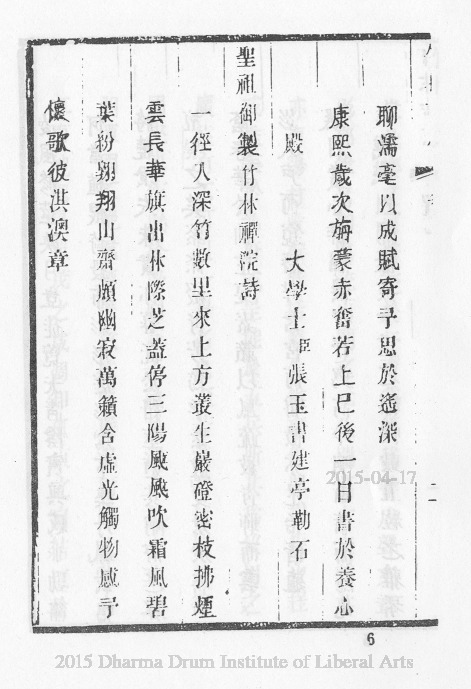 聊濡毫以成賦寄予思於遙深
康熙歲次旃蒙赤奮若上巳後一日書於養心
殿　　　大學士臣張玉書建亭勒石
聖祖御製竹林禪院詩
一徑入深竹數里來上方叢生巖磴密枝拂煙
雲長華旗出林際芝蓋停三陽颾颾吹霜風碧
葉粉翱翔山齋頗幽寂萬籟含虛光觸物感予
懷歌彼淇澳章
2015-04-17
6
2015 Dharma Drum Institute of Liberal Arts